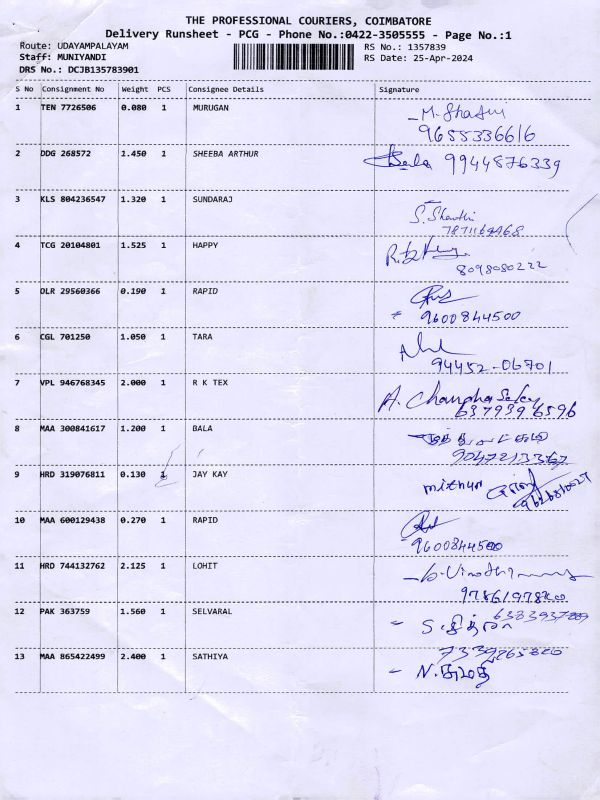 THE PROFESSIONAL COURIERS, COIMBATORE
Delivery Runsheet - PCG - Phone No.:0422-3505555 - Page No.:1
Route: UDAYAMPALAYAM
RS No.: 1357839
Staff: MUNIYANDI
RS Date: 25-Apr-2024
DRS No.: DCJB135783901
S No Consignment No Weight PCS Consignee Details Signature
1 TEN 7726506 0.080 1 MURUGAN
9655336616
2 DDG 268572 1.450 1 SHEEBA ARTHUR Bala 9944876339
3 KLS 804236547 1.320 1 SUNDARAJ
S. Shanthi
4 TCG 20104801 1.525 1 HAPPY
8098080222
5 DLR 29560366 0.190 1 RAPID
9600844500
6 CGL 701250 1.050 1 TARA
94452-06701
7 VPL 946768345 2.000 1 R K TEX
6379396596
8 MAA 300841617 1.200 1 BALA
9047213367
9 HRD 319076811 0.130 1 JAY KAY mithun
10 MAA 600129438 0.270 1 RAPID
9600844500
11 HRD 744132762 2.125 1 LOHIT
12 PAK 363759 1.560 1 SELVARAL
13 MAA 865422499 2.400 1 SATHIYA